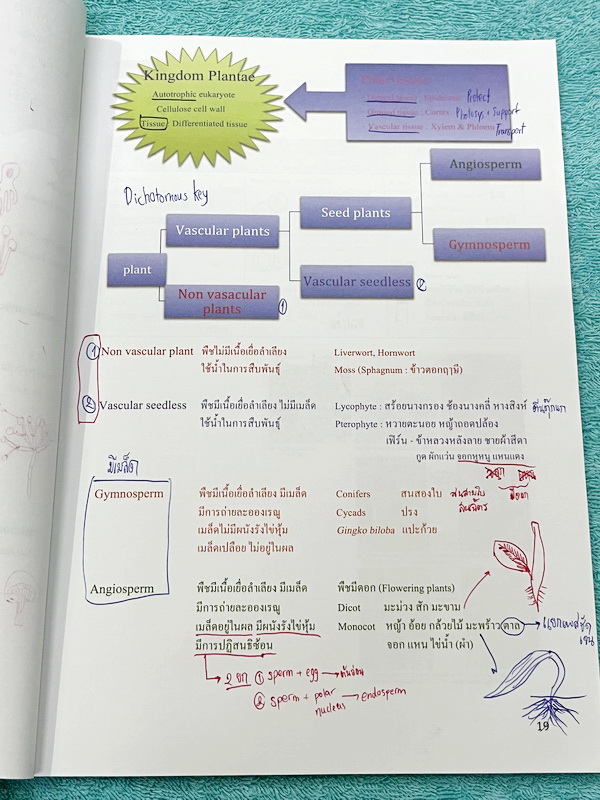 Kingdom Plantae
Autotrophic eukaryote
Cellulose cell wall
Tissue : Differentiated tissue
Protect
Cortex Photosyn + Support
Vascular tissue : Xylem & Phloem Transport
Dichotomous key
plant
Vascular plants
Non vasacular plants ①
Seed plants
Vascular seedless ②
Angiosperm
Gymnosperm
① Non vascular plant พืชไม่มีเนื้อเยื่อลำเลียง Liverwort, Hornwort
ใช้น้ำในการสืบพันธุ์ Moss (Sphagnum : ข้าวตอกฤาษี)
② Vascular seedless พืชมีเนื้อเยื่อลำเลียง ไม่มีเมล็ด Lycophyte : สร้อยนางกรอง ช้องนางคลี่ หางสิงห์ ตีนตุ๊กแก
ใช้น้ำในการสืบพันธุ์ Pterophyte : หวายตะนอย หญ้าถอดปล้อง
เฟิร์น - ข้าหลวงหลังลาย ชายผ้าสีดา
กูด ผักแว่น จอกหูหนู แหนแดง
มีเมล็ด
Gymnosperm พืชมีเนื้อเยื่อลำเลียง มีเมล็ด Conifers สนสองใบ สนสามใบ
มีการถ่ายละอองเรณู Cycads ปรง
เมล็ดไม่มีผนังรังไข่หุ้ม Gingko biloba แปะก๊วย
เมล็ดเปลือย ไม่อยู่ในผล
Angiosperm พืชมีเนื้อเยื่อลำเลียง มีเมล็ด พืชมีดอก (Flowering plants)
มีการถ่ายละอองเรณู Dicot มะม่วง สัก มะขาม
เมล็ดอยู่ในผล มีผนังรังไข่หุ้ม Monocot หญ้า อ้อย กล้วยไม้ มะพร้าว ตาล
มีการปฏิสนธิซ้อน จอก แหน ไข่น้ำ (ผำ)
① sperm + egg → ต้นอ่อน
② sperm + polar nucleus → endosperm
19